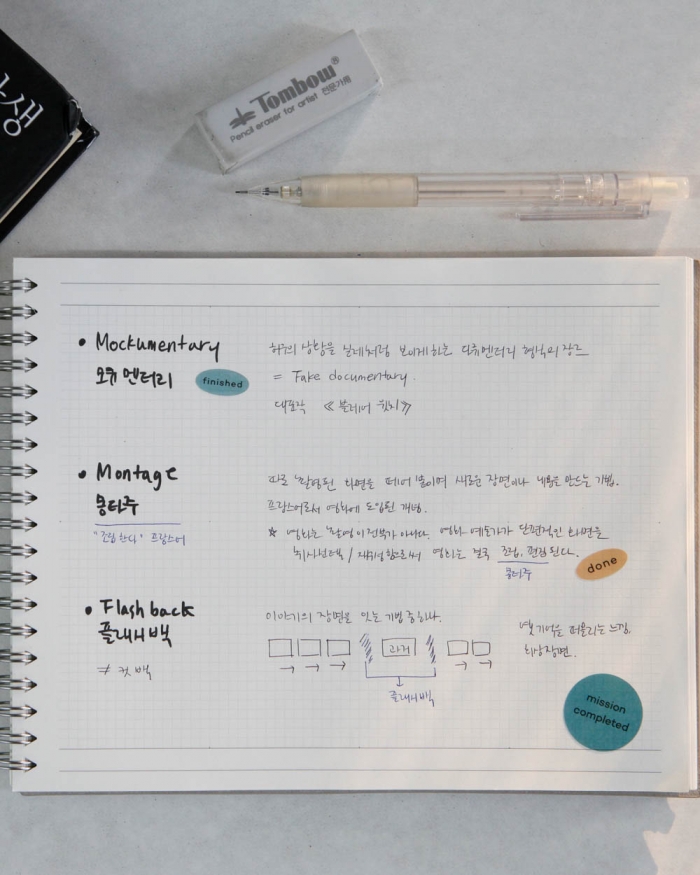 생
Tombow®
Pencil eraser for artist 전문가용
• Mockumentary
모큐멘터리
finished
허구의 상황을 실제처럼 보이게하는 다큐멘터리 형식의 장르
= Fake documentary.
대표작 《블레어 윗치》
• Montage
몽타주
"조립한다" 프랑스어
따로 촬영된 화면을 떼어 붙이며 새로운 장면이나 내용을 만드는 기법.
프랑스어로서 영화에 도입된 개념.
★ 영화는 촬영이 전부가 아니다. 영화 예술가가 단편적인 화면을
취사선택 / 재구성함으로써 영화는 결국 조립, 편집된다.
몽타주
done
• Flashback
플래시백
≠ 컷백
이야기의 장면을 잇는 기법 중 하나.
과거
플래시백
옛 기억을 떠올리는 느낌.
회상장면.
mission
completed